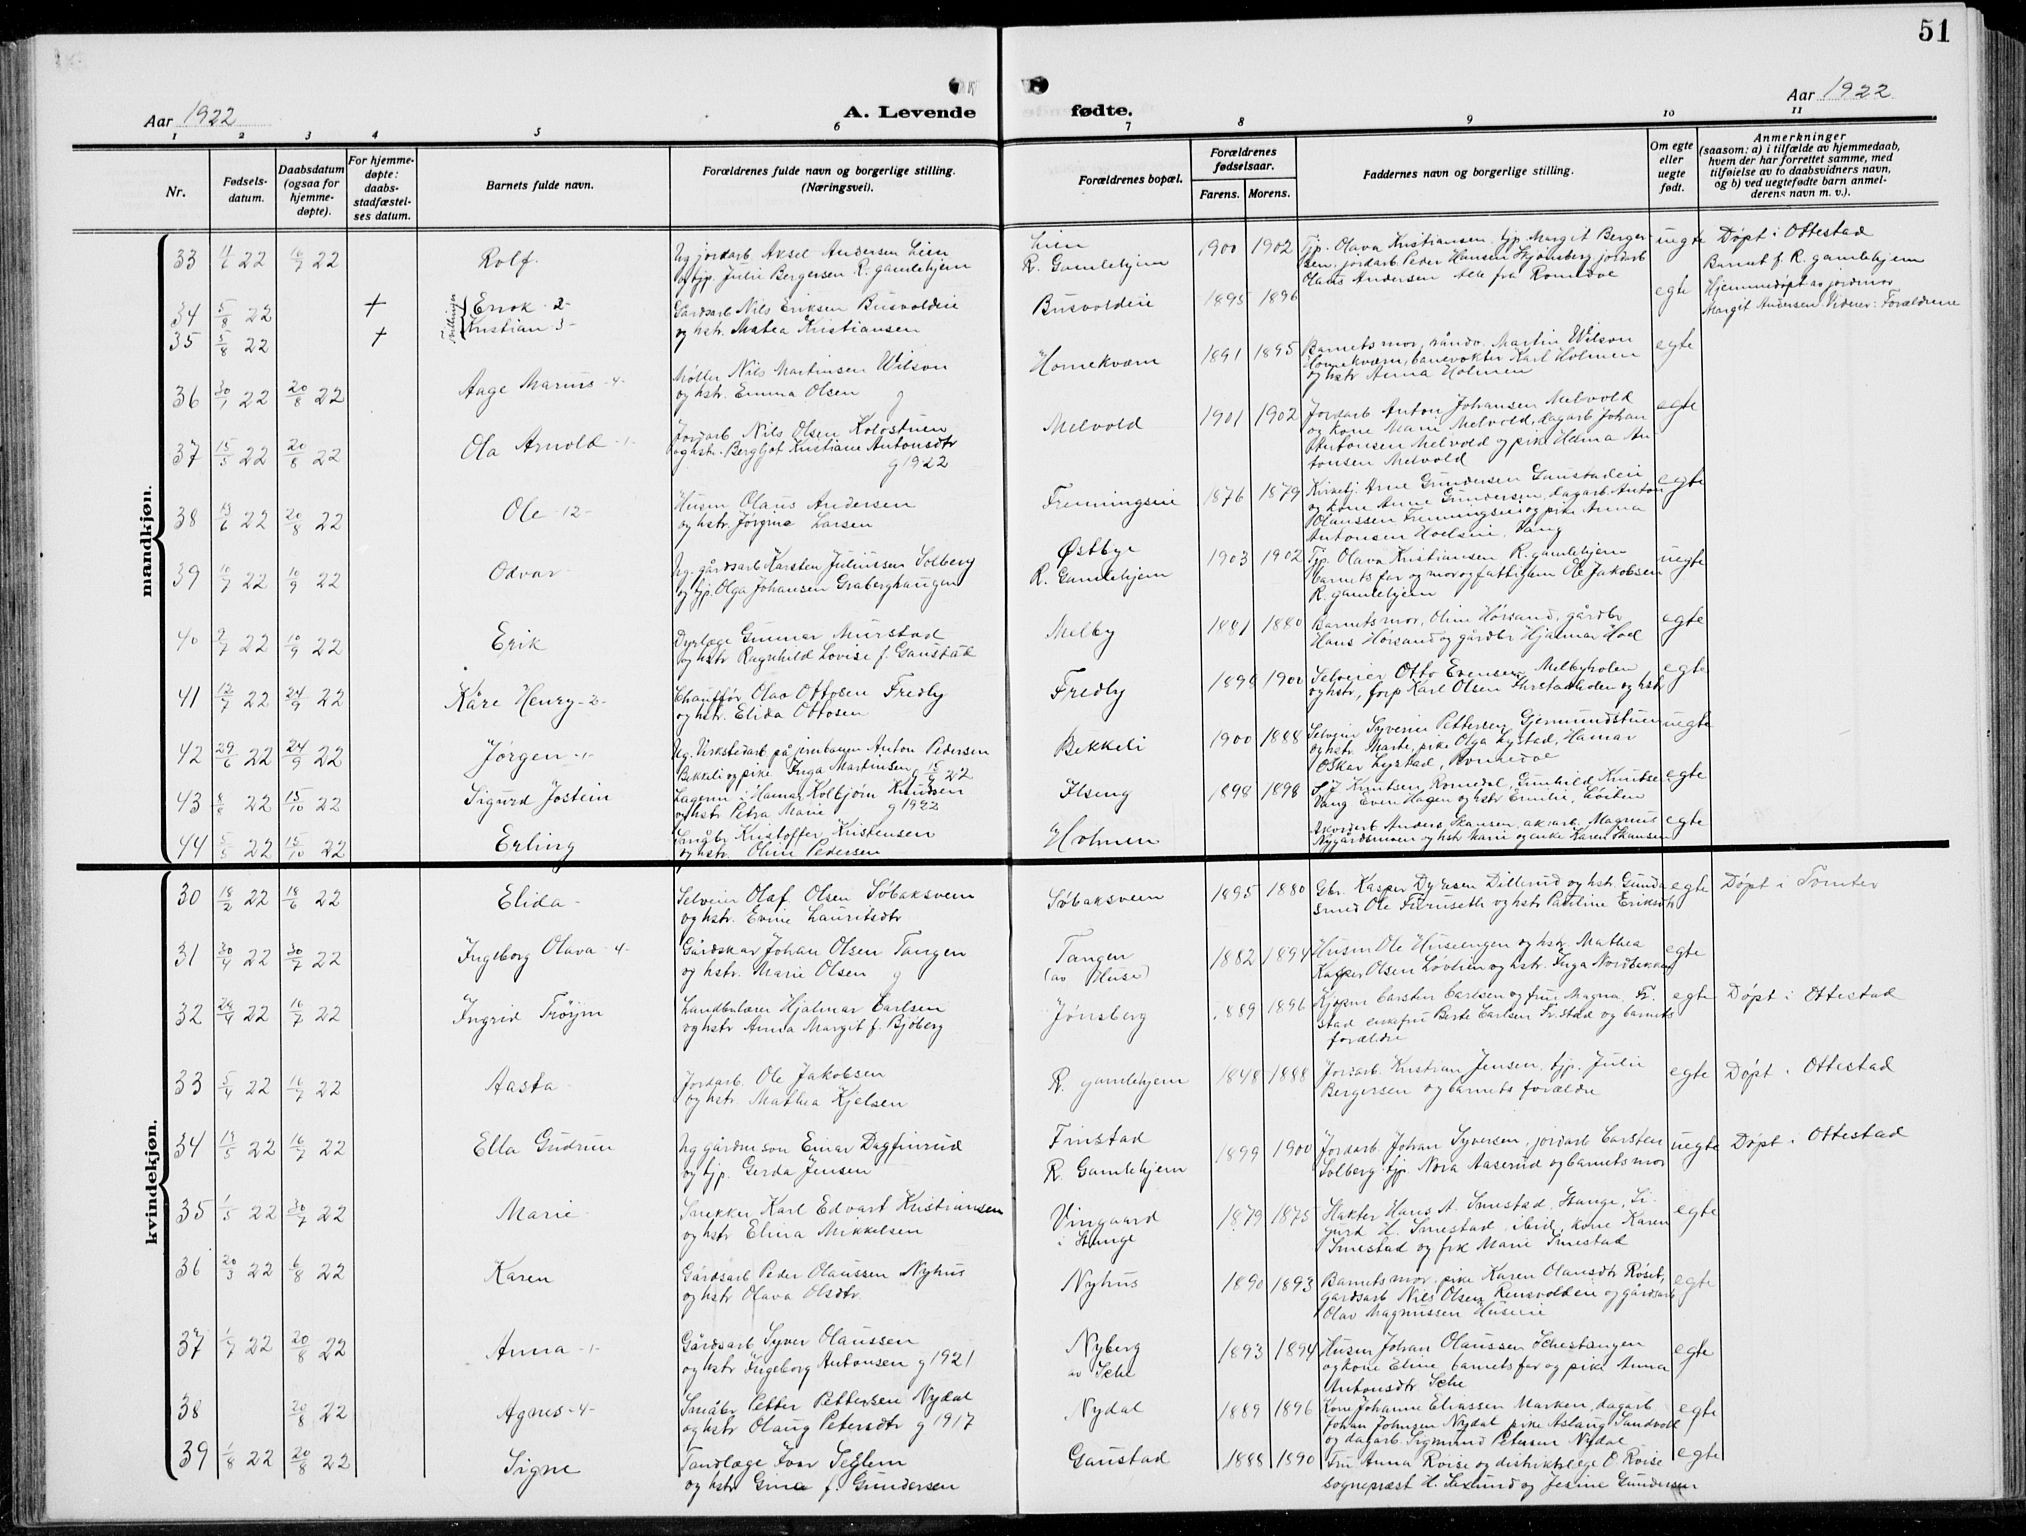 51
Aar 1922
A. Levende fødte.
Aar 1922
1 2 3 4 5 6 7 8 9 10 11
Nr.
Fødsels-
datum.
Daabsdatum
(ogsaa for
hjemme-
døpte).
For hjemme-
døpte:
daabs-
stadfæstel-
ses datum.
Barnets fulde navn.
Forældrenes fulde navn og borgerlige stilling.
(Næringsvei).
Forældrenes bopæl.
Forældrenes
fødselsaar.
Farens. Morens.
Faddernes navn og borgerlige stilling.
Om egte
eller
uegte
født.
Anmerkninger
(saasom: a) i tilfælde av hjemmedaab,
hvem der har forrettet samme, med
tilføielse av to daabsvidners navn,
og b) ved uegtefødte barn anmel-
derens navn m. v.).
mandkjøn.
33 22 16/7 22 Rolf.
Ug. jordarb. Aksel Andersen Lien
og tjp. Julie Bergersen R. gamlehjem
Lien
R. Gamlehjem
1900 1902
Tjp. Olava Kristiansen, tjp. Margit Berger-
sen, jordarb Peder Hansen Hjemsberg, jordarb
Olaus Andersen Alle fra Romedal
uegte
Døpt i Ottestad
Barnet f. R. gamlehjem
34 5/8 22 + Tvillinger Errok -2-
35 5/8 22 + Kristian -3-
Gårdsarb Nils Eriksen Busvoldeie
og hstr. Matea Kristiansen
Busvoldeie
1895 1896
egte
Hjemmedøpt av jordmor
Margit Andersen Vidner: Forældrene
36 30/7 22 20/8 22 Aage Marius -4-
Møller Nils Martinsen Wilson
og hstr. Emma Olsen g
Hornekværn
1891 1895
Barnets mor, Martin Wilson
Hornekværn, banevokter Karl Holmen
og hstr Anna Holmen
egte
37 15/5 22 20/8 22 Ola Arnold -1-
Jordarb Nils Olsen Kolostuen
og hstr. Bergljot Kristiane Antonsdtr
g 1922
Melvold
1901 1902
Jordarb Anton Johansen Melvold
og kone Mari Melvold, dagarb Johan
Antonsen Melvold og pike Helma An
tonsen Melvold
egte
38 13/6 22 20/8 22 Ole -12-
Husm Olaus Andersen
og hstr. Jørgine Larsen
Frenningseie
1876 1879
Kirketj. Arne Gundersen Gaustadeie
og kone Anne Gundersen, dagarb. Anton
Olaussen Frenningseie og pike Anna
Antonsen Hoelseie, Vang
egte
39 16/7 22 10/9 22 Odvar
Ug. gårdsarb Karsten Juliussen Solberg
og tjp. Olga Johansen Graberghaugen
Østbye
R. Gamlehjem
1903 1902
Tjp. Olava Kristiansen R. gamlehjem
barnets far og mor og fattiglem Ole Jakobsen
R. gamlehjem
uegte
40 9/7 22 10/9 22 Erik
Dyrlæge Gunnar Murstad
og hstr Ragnhild Lovise f. Gaustad
Melby
1881 1880
Barnets mor, Oline Hørsand, gårdbr
Hans Hørsand og gårdbr Hjalmar Hoel
egte
41 12/7 22 24/9 22 Kåre Henry -2-
Chauffør Olav Ottosen Fredly
og hstr. Elida Ottosen
Fredly
1898 1900
Selveier Otto Evensen Melbyholen
og hstr, forp Karl Olsen og hstr
egte
42 29/6 22 24/9 22 Jørgen -1-
Ug. Virkstedarb på jernbanen Anton Pedersen
Bekkeli og pike Inga Martinsen g 15/9 22
Bekkeli
1900 1888
Selveier Syverin Pettersen Gjermundstuen
og hstr Marte, pike Olga Lystad, Hamar
Oskar Lystad, Romedal
uegte
43 8/8 22 15/10 22 Sigurd Jostein
Lagerm i Hamar Kolbjørn Knudsen
og hstr Petra Marie g 1922
Ilseng
1898 1898
Knutsen Romedal, Gunhild Knutsen
Vang Even Hagen og hstr Emilie, Løiten
egte
44 5/5 22 15/10 22 Erling
Småbr Kristoffer Kristensen
og hstr. Oline Pedersen
Holmen
Akordarb Anders Skansen, ak.arb. Magnus
Nygårdsmoen og hstr Marie og enke Karen Skansen
egte
kvindekjøn.
30 18/2 22 18/6 22 Elida
Selveier Olaf Olsen Søbaksveen
og hstr. Evine Lauritsdtr
Søbaksveen
1895 1880
Gbr. Kasper Dyresen Dillerud og hstr Gunda
Smed Ole Furuseth og hstr Pauline Eriksdtr
egte
Døpt i Tomter
31 30/4 22 30/7 22 Ingeborg Olava -4-
Gårdskar Johan Olsen Tangen
og hstr. Marie Olsen g
Tangen
(av Huse)
1882 1894
Husm Ole Huseengen og hstr. Mathea
Kasper Olsen Løvlien og hstr. Inga Nordbakken
egte
32 29/4 22 16/7 22 Ingrid Trøym
Landbrlærer Hjalmar Carlsen
og hstr Anna Margit f. Bjøberg
Jønsberg
1889 1896
Kjøpm Carsten Carlsen og frue Magna, Fr.
stad enkefru Berte Carlsen Fr.stad og barnets
forældre
egte
Døpt i Ottestad
33 5/4 22 16/7 22 Aasta
Jordarb. Ole Jakobsen
og hstr. Mathea Kjelsen
R. gamlehjem
1848 1888
Jordarb Kristian Jensen, tjp. Julie
Bergersen og barnets forældre
egte
Døpt i Ottestad
34 13/5 22 16/7 22 Ella Gudrun
Ug gårdm.søn Einar Dagfinrud
og tjp. Gerda Jensen
Finstad
R. Gamlehjem
1899 1900
Jordarb. Johan Syversen, jordarb Carsten
Solberg tjp. Nora Aaserud og barnets mor
uegte
Døpt i Ottestad
35 1/5 22 30/7 22 Marie
Snekker Karl Edvart Kristiansen
og hstr Elina Mikkelsen
Vingaard
i Stange
1879 1875
Hans A. Smestad, Stange, Si-
gurd H. Smestad, ibid, kone Karen
Smestad og frk Marie Smestad
egte
36 20/3 22 6/8 22 Karen
Gårdsarb Peder Olaussen Nyhus
og hstr Olava Olsdtr.
Nyhus
1890 1893
Barnets mor, pike Karen Olausdtr Røset,
Gårdsarb Nils Olsen Rensvoldeie og gårdsarb
Olav Magnussen Huseeie
egte
37 1/7 22 20/8 22 Anna -1-
Gårdsarb Syver Olaussen
og hstr Ingeborg Antonsen g 1921
Nyberg
av Sche
1893 1894
Husm Johan Olaussen Schestangen
og kone Eline, barnets far og pike Anna
Antonsdtr Sche
egte
38 20/8 22 Agnes -4-
Småbr Petter Pettersen Nydal
og hstr Olaug Petersdtr g 1917
Nydal
1889 1896
Kone Johanne Eliassen Marken, dagarb
Johan Johnsen Nydal pike Aslaug Sandvold
og dagarb. Sigmund Petersen Nydal
egte
39 1/8 22 20/8 22 Signe
Tandlæge Ivar Seglem
og hstr Gina f. Gundersen
Gaustad
1888 1890
Fru Anna Roise og distriktslæge O. Roise
sogneprest H. og Jesine Gundersen
egte